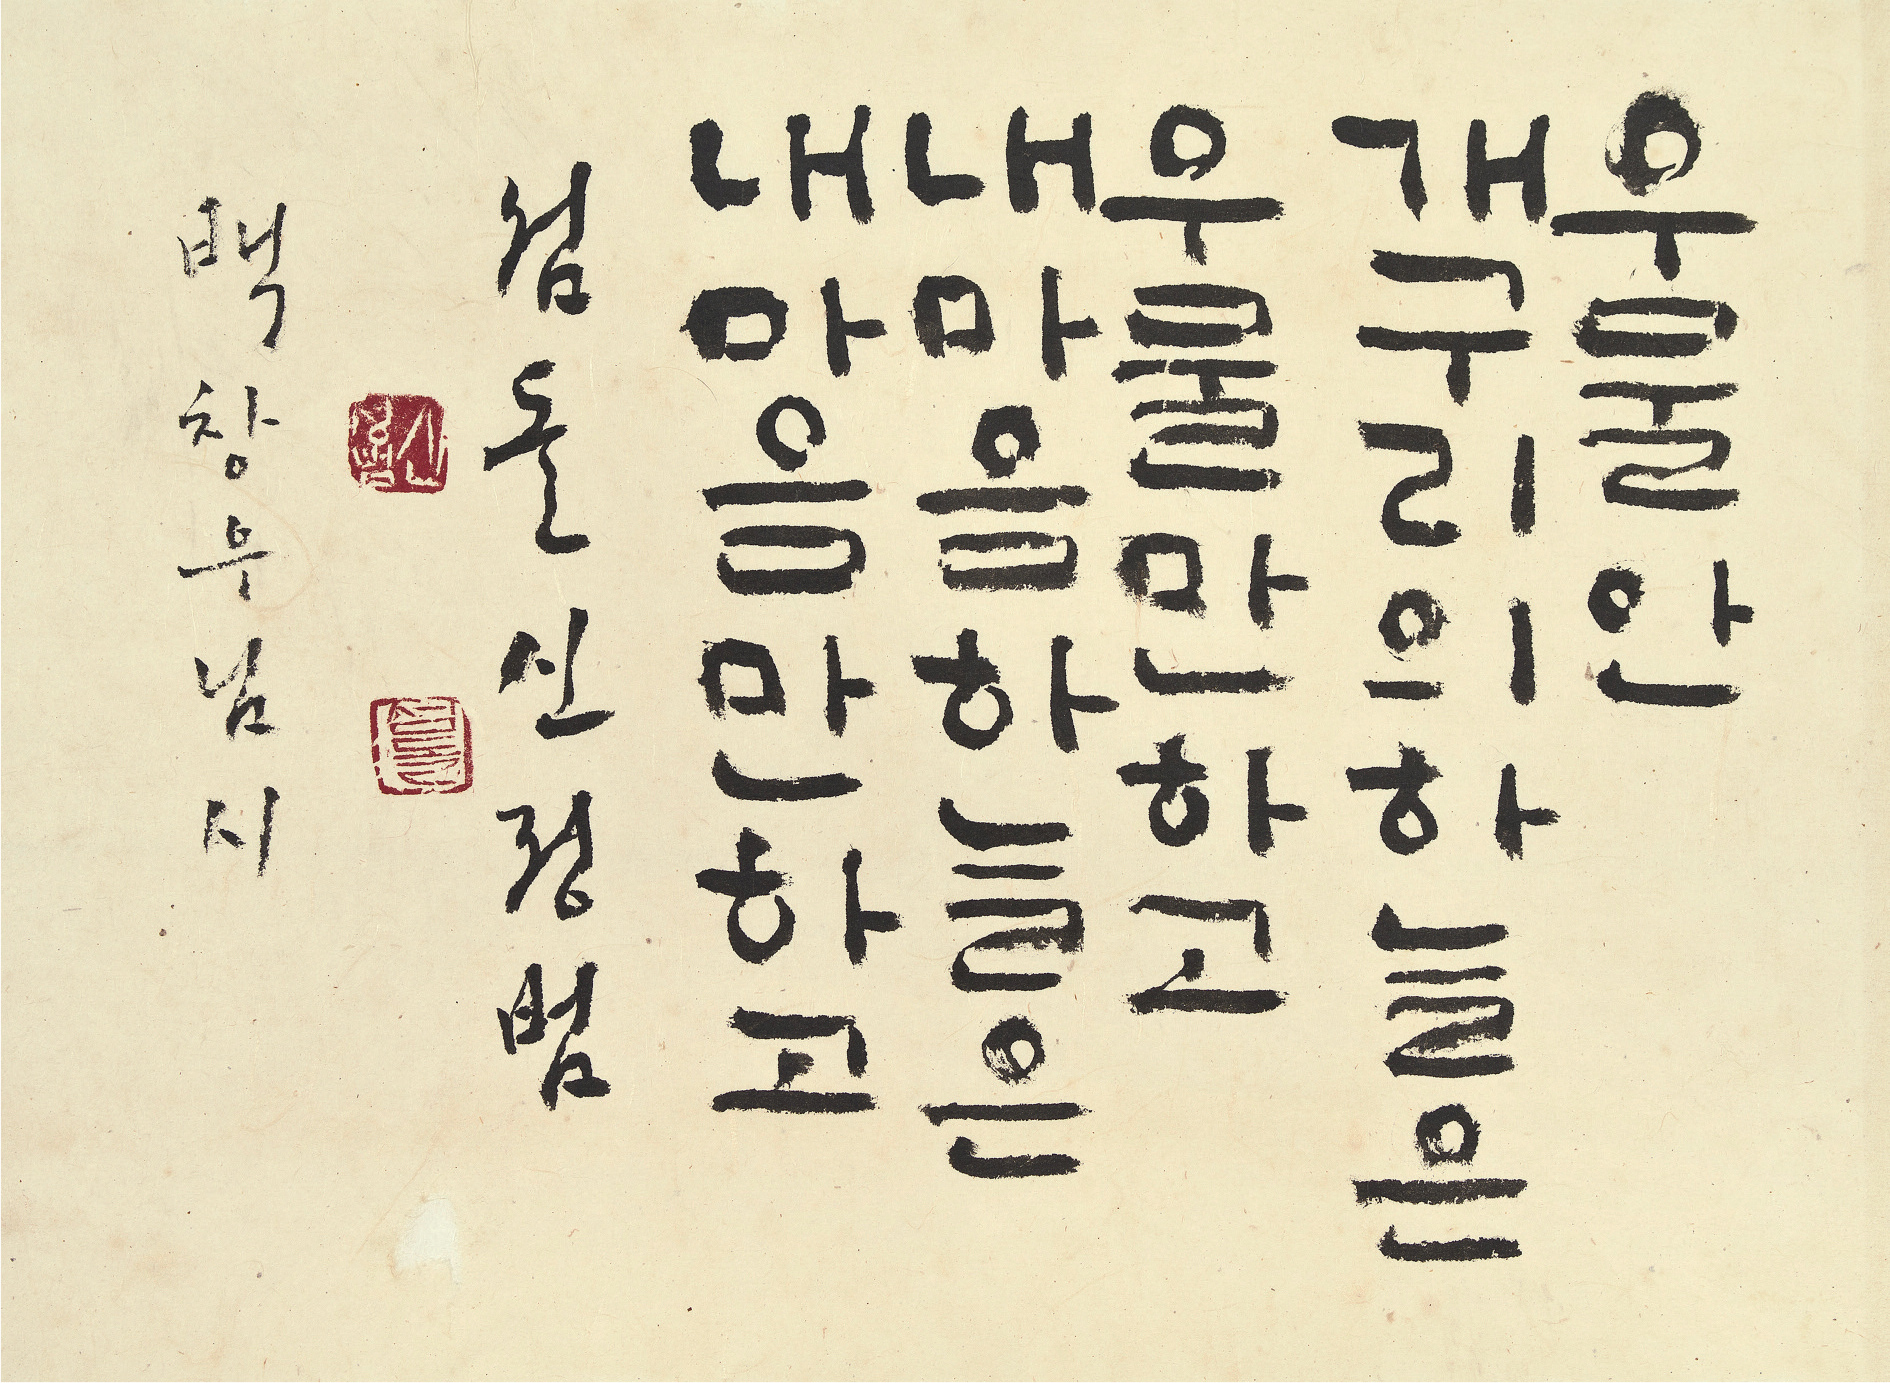 우물안
개구리의하늘은
우물만하고
내마음하늘은
내마음만하고
섬돌신정범
백창우님시